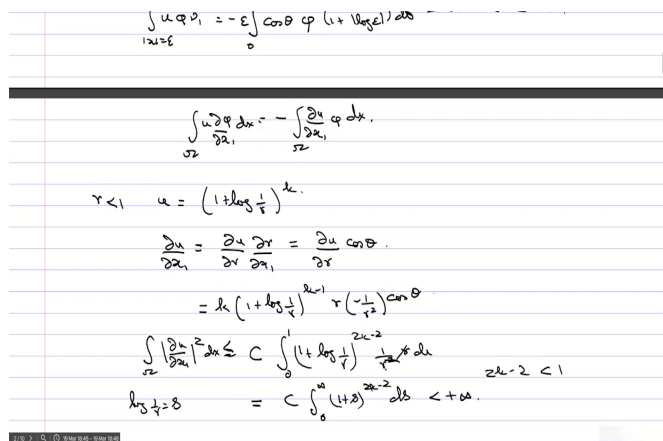 ∫_{|x|=ε} u φ ν₁ = -ε ∫_0 cosθ φ (1 + |log ε|) dθ
∫_Ω u ∂φ/∂x₁ dx = - ∫_Ω ∂u/∂x₁ φ dx.
r < 1 u = (1 + log 1/r)^k.
∂u/∂x₁ = ∂u/∂r ∂r/∂x₁ = ∂u/∂r cosθ.
= k (1 + log 1/r)^{k-1} r (-1/r²) cosθ
∫_Ω |∂u/∂x₁|² dx ≤ C ∫_0^1 (1 + log 1/r)^{2k-2} 1/r² r dr
2k-2 < 1
log 1/r = s = C ∫_0^∞ (1+s)^{2k-2} ds < +∞.
2/10 19 Mar 18:46 - 19 Mar 18:46